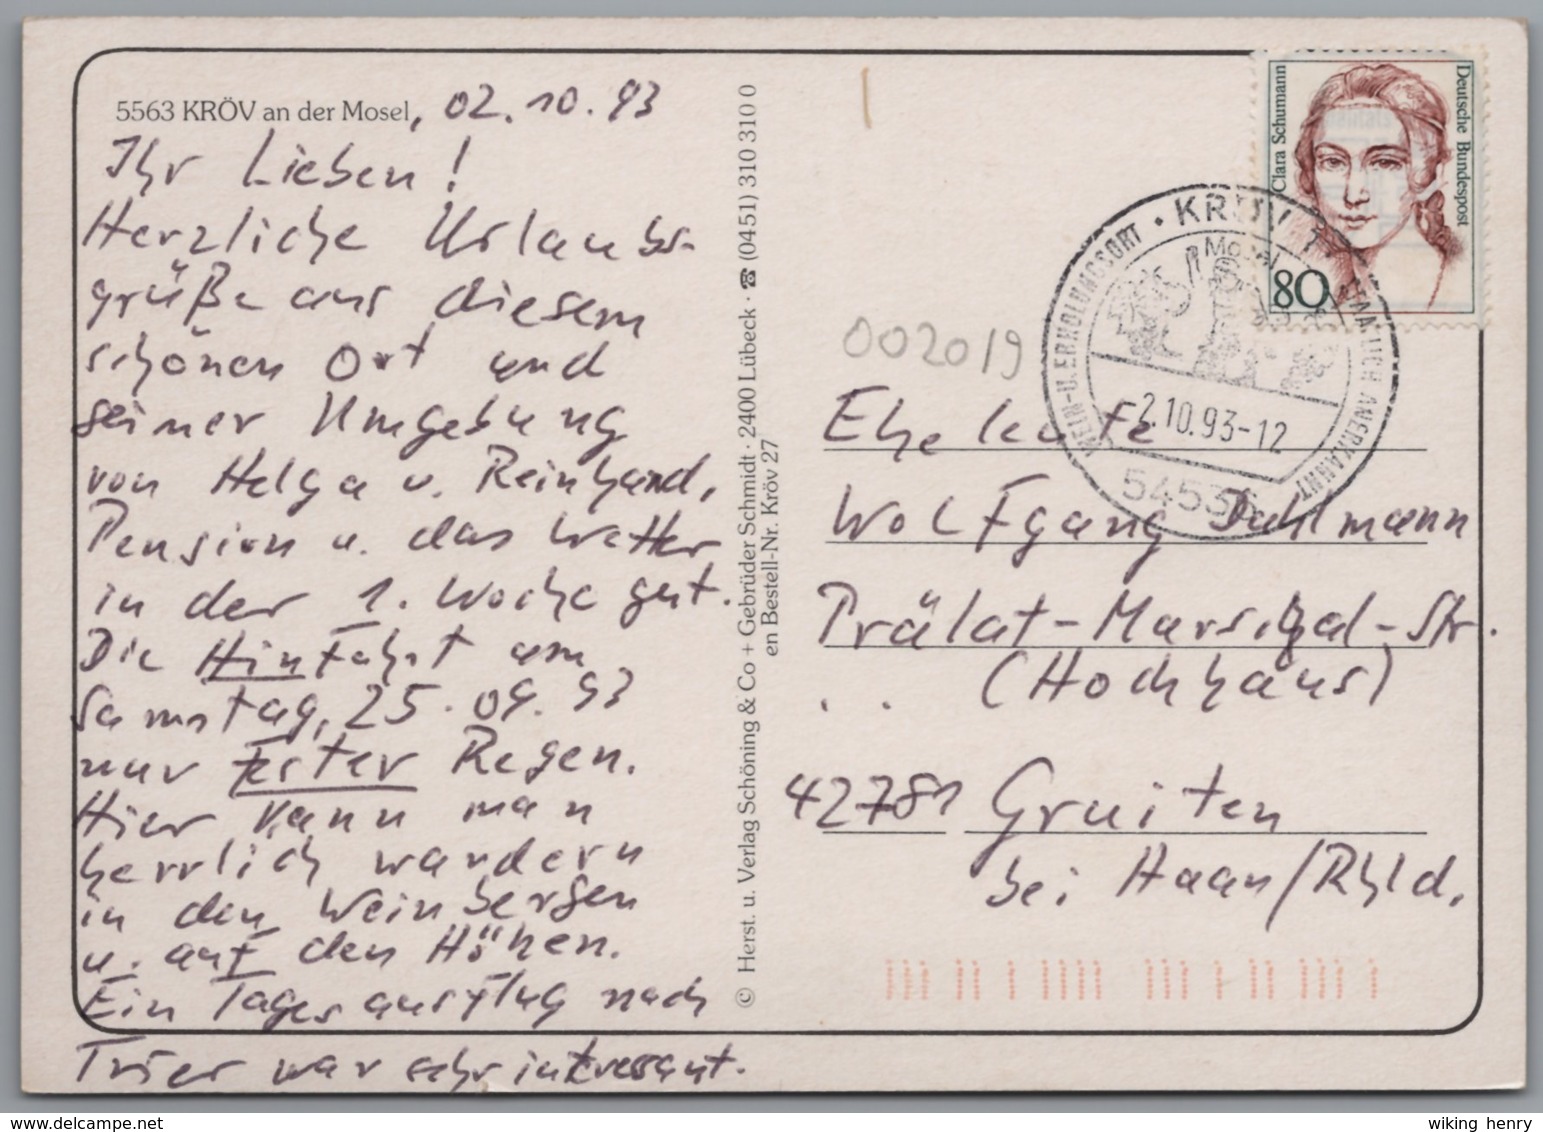 5563 KRÖV an der Mosel, 02.10.93
Ihr Lieben!
Herzliche Urlaubs-
grüße aus diesem
schönen Ort und
seiner Umgebung
von Helga u. Reinhard,
Pension u. das Wetter
in der 1. Woche gut.
Die Hinfahrt am
Samstag, 25.09.93
nur fester Regen.
Hier kann man
herrlich wandern
in den Weinbergen
u. auf den Höhen.
Ein Tagesausflug nach
Trier war sehr interessant.
© Herst. u. Verlag Schöning & Co + Gebrüder Schmidt · 2400 Lübeck · ☎ (0451) 310 310 0
en Bestell-Nr. Kröv 27
Clara Schumann
Deutsche Bundespost
80
KRÖV 1
Mosel
WEIN-U.ERHOLUNGSORT
STAATLICH ANERKANNT
2.10.93-12
54536
002019
Eheleute
Wolfgang Dahlmann
Prälat-Marschal-Str.
. . (Hochhaus)
42781 Gruiten
bei Haan/Rhld.
wiking henry